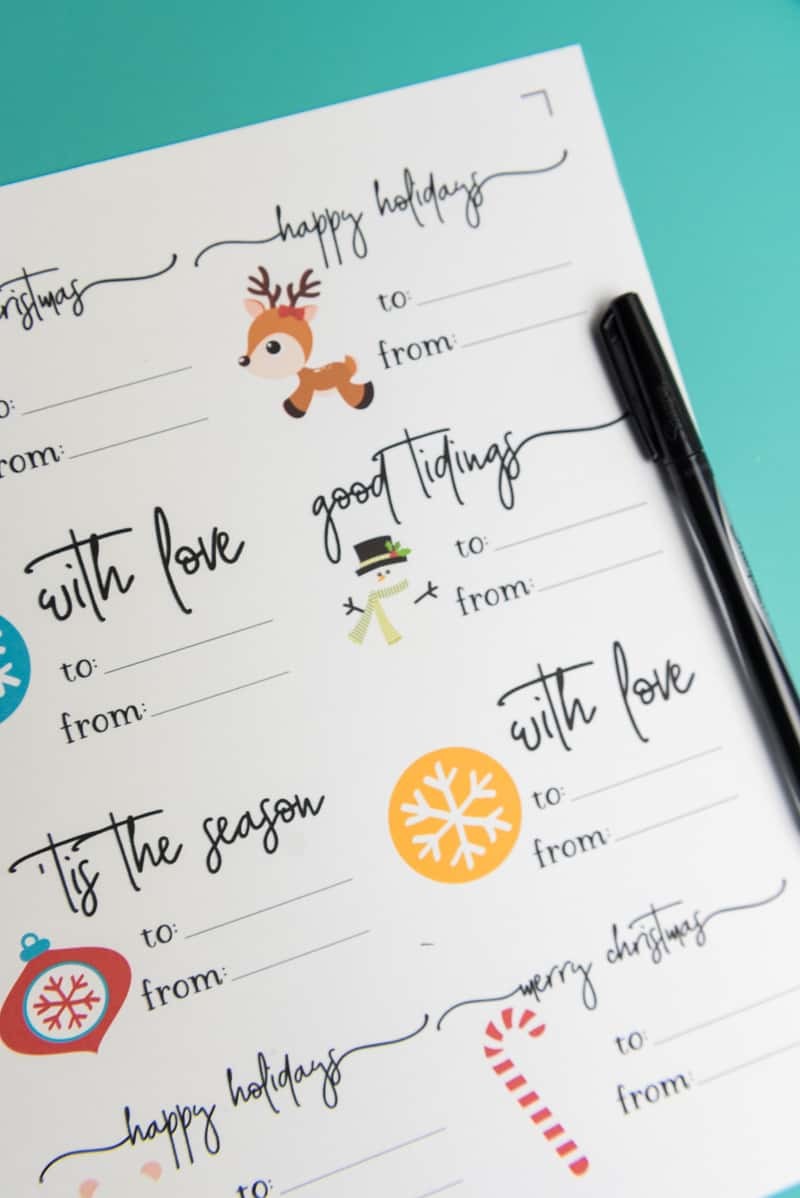 happy holidays
to:
from:
ristmas
o:
rom:
good tidings
to:
from:
with love
to:
from:
with love
to:
from:
'tis the season
to:
from:
merry christmas
to:
from:
happy holidays
to: